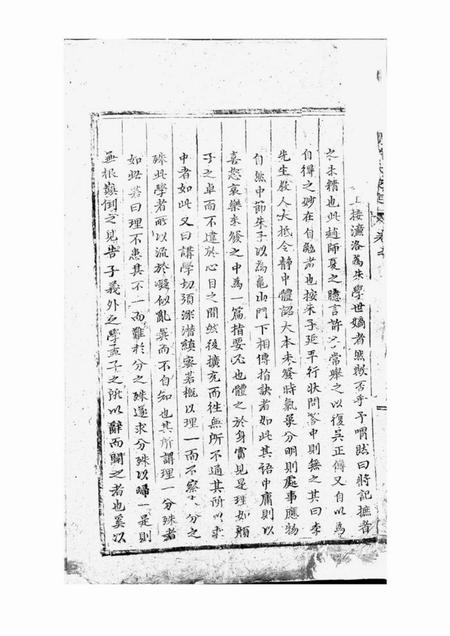 上接濂洛爲朱學世嫡者無疑否乎予喟肰曰時記摭者
之未精也此趙師夏之臆言許公常舉之以復吳正傳又自以爲
自得之妙在自勉者也按朱子延平行狀問答中則無之其曰李
先生敎人大抵令靜中體認大本未發時氣象分明則處事應物
自然中節朱子以爲龜山門下相傳指訣者如此其語中庸則以
喜怒哀樂未發之中爲一篇指要必也體之於身實見是理如顔
子之卓而不違於心目之間然後擴充而往無所不通其所以求
中者如此又曰講學切須深潛縝密若槪以理一而不察分之
殊此學者所以流於疑似亂眞而不自知也其所謂理一分殊者
如此若曰理不患其不一而難於分之殊遂求分殊以歸一是則
無根顚倒之見告子義外之學孟子之所以辭而闢之者也奚以